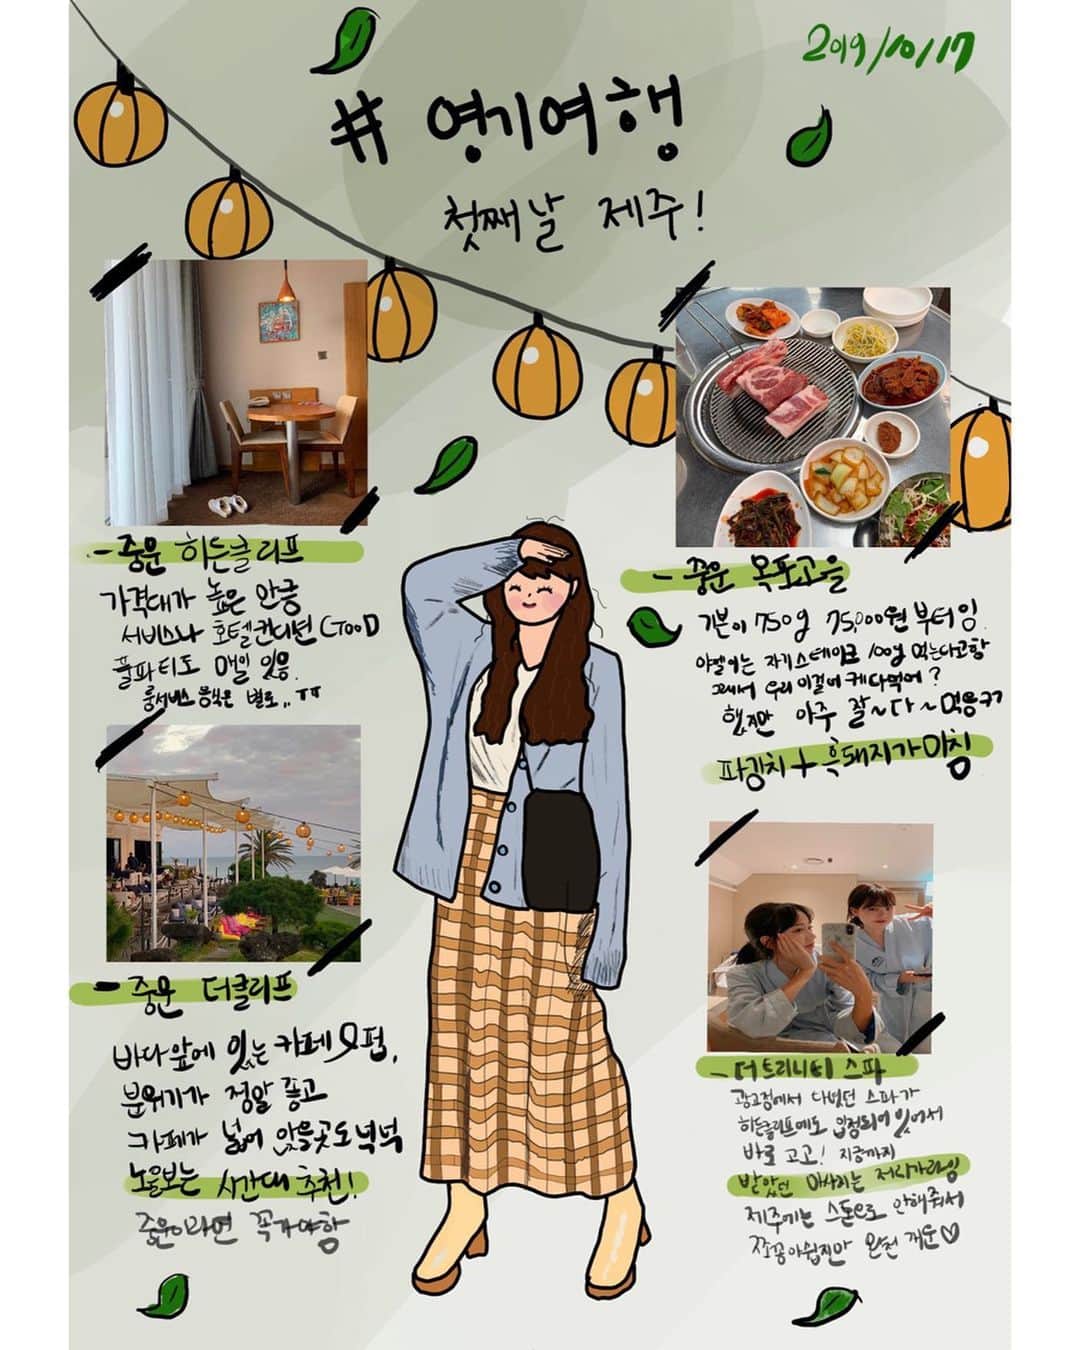 2019/10/17
# 영기여행
첫째날 제주!
- 중문 히든클리프
가격대가 높은 만큼
서비스나 호텔컨디션 GOOD
풀파티도 매일 있음.
룸서비스 음식은 별로.. ㅠㅠ
- 중문 더클리프
바다앞에 있는 카페&펍,
분위기가 정말 좋고
카페가 넓어 앉을곳도 넉넉
노을보는 시간대 추천!
중문이라면 꼭가야함
- 중문 목포고을
기본이 750g 75,000원부터임.
자기 스테이크 100g 먹는다고함
그래서 우리 이걸 어케 다먹어?
했지만 아주 잘~다~먹음ㅋㅋ
파김치+흑돼지가 미침
- 더트리니티 스파
광교점에서 다녔던 스파가
히든클리프에도 입점되어 있어서
바로 고고! 지금까지
받았던 마사지는 저리가라임
제주에는 스톤으로 안해줘서
쪼꼼아쉽지만 완전 개운♡